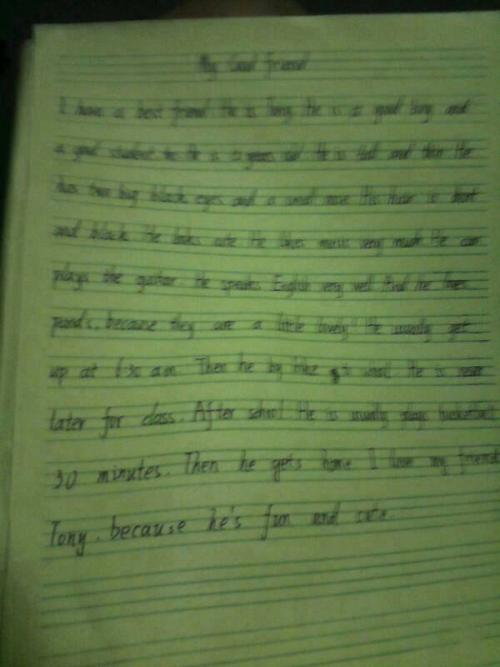 My Good Friend
I have a best friend. He is Tony. He is a good boy and
a good student. He is years old. He is tall and thin. He
has two big black eyes and a small nose. His hair is short
and black. He looks cute. He likes music very much. He can
plays the guitar. He speaks English very well. And he loves
pands, because they are a little lovely. He usually get
up at 6:30 am. Then he by bike to school. He is never
later for class. After school He is usually plays basketball
30 minutes. Then he gets home. I love my friend
Tony. because he's fun and cute.